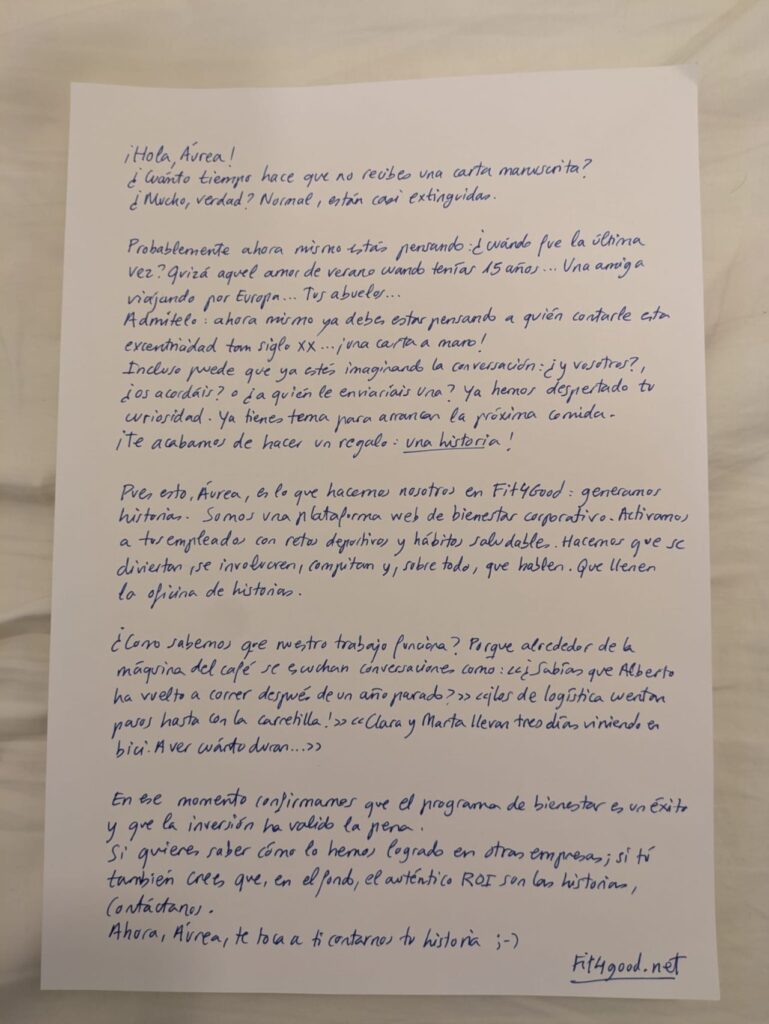 ¡Hola, Áurea!
¿Cuánto tiempo hace que no recibes una carta manuscrita?
¿Mucho, verdad? Normal, están casi extinguidas.
Probablemente ahora mismo estás pensando: ¿cuándo fue la última
vez? Quizá aquel amor de verano cuando tenías 15 años... Una amiga
viajando por Europa... Tus abuelos...
Admítelo: ahora mismo ya debes estar pensando a quién contarle esta
excentricidad tan siglo XX... ¡una carta a mano!
Incluso puede que ya estés imaginando la conversación: ¿y vosotros?,
¿os acordáis? o ¿a quién le enviaríais una? Ya hemos despertado tu
curiosidad. Ya tienes tema para arrancar la próxima comida.
¡Te acabamos de hacer un regalo: una historia!
Pues esto, Áurea, es lo que hacemos nosotros en Fit4Good: generamos
historias. Somos una plataforma web de bienestar corporativo. Activamos
a tus empleados con retos deportivos y hábitos saludables. Hacemos que se
diviertan, se involucren, compitan y, sobre todo, que hablen. Que llenen
la oficina de historias.
¿Como sabemos que nuestro trabajo funciona? Porque alrededor de la
máquina del café se escuchan conversaciones como: <<¿Sabías que Alberto
ha vuelto a correr después de un año parado?>> <<¡Los de logística cuentan
pasos hasta con la carretilla!>> <<Clara y Marta llevan tres días viniendo en
bici. A ver cuánto duran...>>
En ese momento confirmamos que el programa de bienestar es un éxito
y que la inversión ha valido la pena.
Si quieres saber cómo lo hemos logrado en otras empresas; si tú
también crees que, en el fondo, el auténtico ROI son las historias,
contáctanos.
Ahora, Áurea, te toca a ti contarnos tu historia ;-)
Fit4good.net